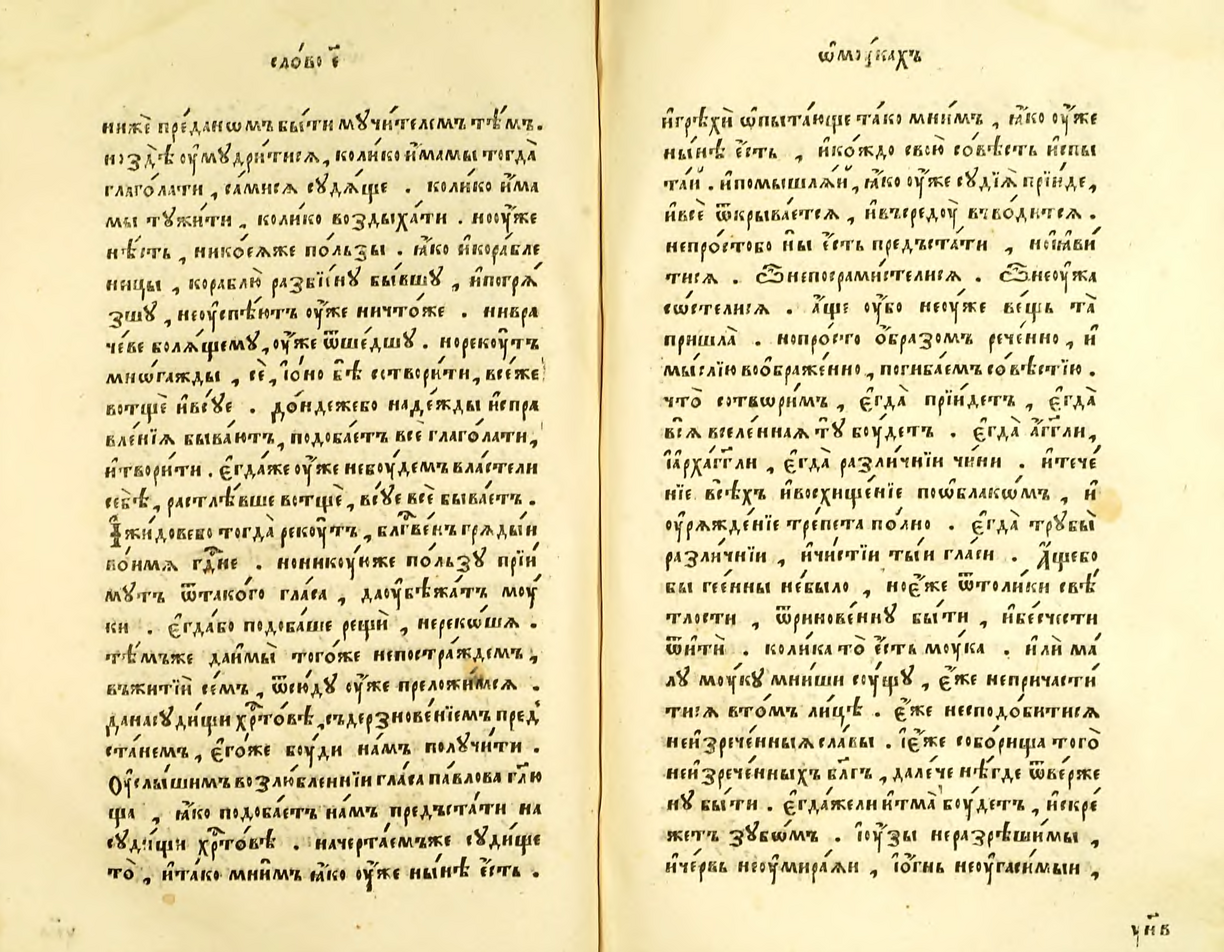 сло́во є҃
нижѐ пре́даномъ бы́ти мꙋчи́телемъ тѣ́мъ.
но здѣ̀ ᲂу҆мꙋдри́тисѧ, колико и҆мамы тогда̀
глаго́лати, са́мисѧ сꙋдѧ́ще . колико и҆ма
мы тꙋжи́ти, колико воздыха́ти . ноᲂу҆́же
нѣ́сть, нико́еѧже по́льзы . ꙗ҆́ко и҆корабле
ницы, кораблю̀ разбїи́нꙋ бы́вшꙋ, и҆погрѧ́
зшꙋ, неᲂу҆спѣ́ютъ ᲂу҆́же ничто́же . нивра
че́ве болѧ́щемꙋ, ᲂу҆́же ѿше́дшꙋ . нореко́утъ
мно́гажды, сѐ, і҆о́но бѣ̀ сотвори́ти, все́же
вотщѐ и҆всꙋ́е . до́ндежебо наде́жды и҆спра
вле́нїѧ быва́ютъ, подоба́етъ всѐ глаго́лати,
и҆твори́ти . є҆гда́же ᲂу҆́же небоу́демъ вла́стели
себѣ̀, растлѣ́вше вотщѐ, всꙋ́е всѐ быва́етъ .
І҆жи́довебо тогда̀ реко́утъ, блг҃ве́нъ грѧды́и
во́имѧ гдⷭ҇не . нонико́уиже по́льзꙋ прїи́
мꙋтъ ѿтако́го гла́са, даᲂу҆бѣжа́тъ моу́
ки . є҆гда́бо подоба́ше рещѝ, нереко́шѧ .
тѣ́мъже даи҆мы̀ того́же непостра́ждемъ,
въжитїѝ се́мъ, ѿсю́дꙋ ᲂу҆́же преложи́мсѧ .
данасꙋди́щи хрⷭ҇то́вѣ, съдерзнове́нїемъ пред
ста́немъ, є҆го́же боу́ди на́мъ полꙋчи́ти .
Оу҆слы́шимъ возлю́бленнїи гла́са па́влова гл҃ю
ща, ꙗ҆́ко подоба́етъ на́мъ предъста́ти на
сꙋди́щи хрⷭ҇то́вѣ . начерта́емъже сꙋди́ще
то̀, и҆та́ко мни́мъ ꙗ҆́ко ᲂу҆́же ны́нѣ є҆́сть .
ѡ҆мꙋ́кахъ
и҆грѣхѝ ѡ҆пыта́юще та́ко мни́мъ, ꙗ҆́ко ᲂу҆́же
ны́нѣ є҆́сть, и҆ко́ждо свою̀ со́вѣсть и҆спы
та́й . и҆помышлѧ́й, ꙗ҆́ко ᲂу҆́же сꙋдїѧ̀ прїи́де,
и҆всѐ ѿкрыва́етсѧ, и҆въсредоу̀ въво́дитсѧ .
непро́стобо ны̀ є҆́сть предъста́ти, но и҆ꙗ҆ви́
тисѧ . Ѿнепосрами́стелисѧ . Ѿнеᲂу҆жа
со́стелисѧ . а҆́ще ᲂу҆́бо неᲂу҆́же ве́щь та̀
пришла̀ . нопро́сто о҆́бразомъ рече́нно, и҆
мы́слїю воо҆браже́нно, погиба́емъ со́вѣстїю .
что̀ сотвѡри́мъ, є҆гда̀ прїи́детъ, є҆гда̀
всѧ̀ вселе́ннаѧ тꙋ̀ боу́детъ . є҆гда̀ а҆́гг҃ли,
і҆а҆рха́гг҃ли, є҆гда̀ разли́чнїи чи́ни . и҆тече́
нїе всѣ́хъ и҆восхище́нїе поѡ҆́блакомъ, и҆
ᲂу҆рѧжде́нїе тре́пета по́лно . є҆гда̀ трꙋбы̀
разли́чнїи, и҆чи́стїи ты́и гла́си . А҆́щебо
бы гее́нны не́было, ноє҆́же ѿтоли́ки свѣ́
тлости, ѿринове́ннꙋ бы́ти, и҆бесче́сти
ѿитѝ . коли́ка то̀ є҆́сть моу́ка . и҆лѝ ма́
лꙋ моу́кꙋ мни́ши соу́щꙋ, є҆́же непричасти
тисѧ вто́мъ лицѣ̀ . є҆́же несподо́битисѧ
неи҆зрече́нныѧ сла́вы . і҆є҆́же собо́рища того̀
неи҆зрече́нныхъ бл҃гъ, дале́че нѣ́где ѿве́рже
нꙋ бы́ти . є҆гда́жели и҆тма̀ боу́детъ, и҆скре́
жетъ зꙋбо́мъ . і҆оу҆́зы неразрѣши́мы,
и҆че́рвь неᲂу҆мира́ѧи, і҆о҆́гнь неᲂу҆гаси́мыи,
ун҃в